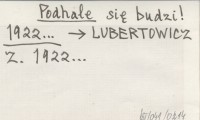 Podhale się budzi!
1922... → LUBERTOWICZ
Z. 1922...